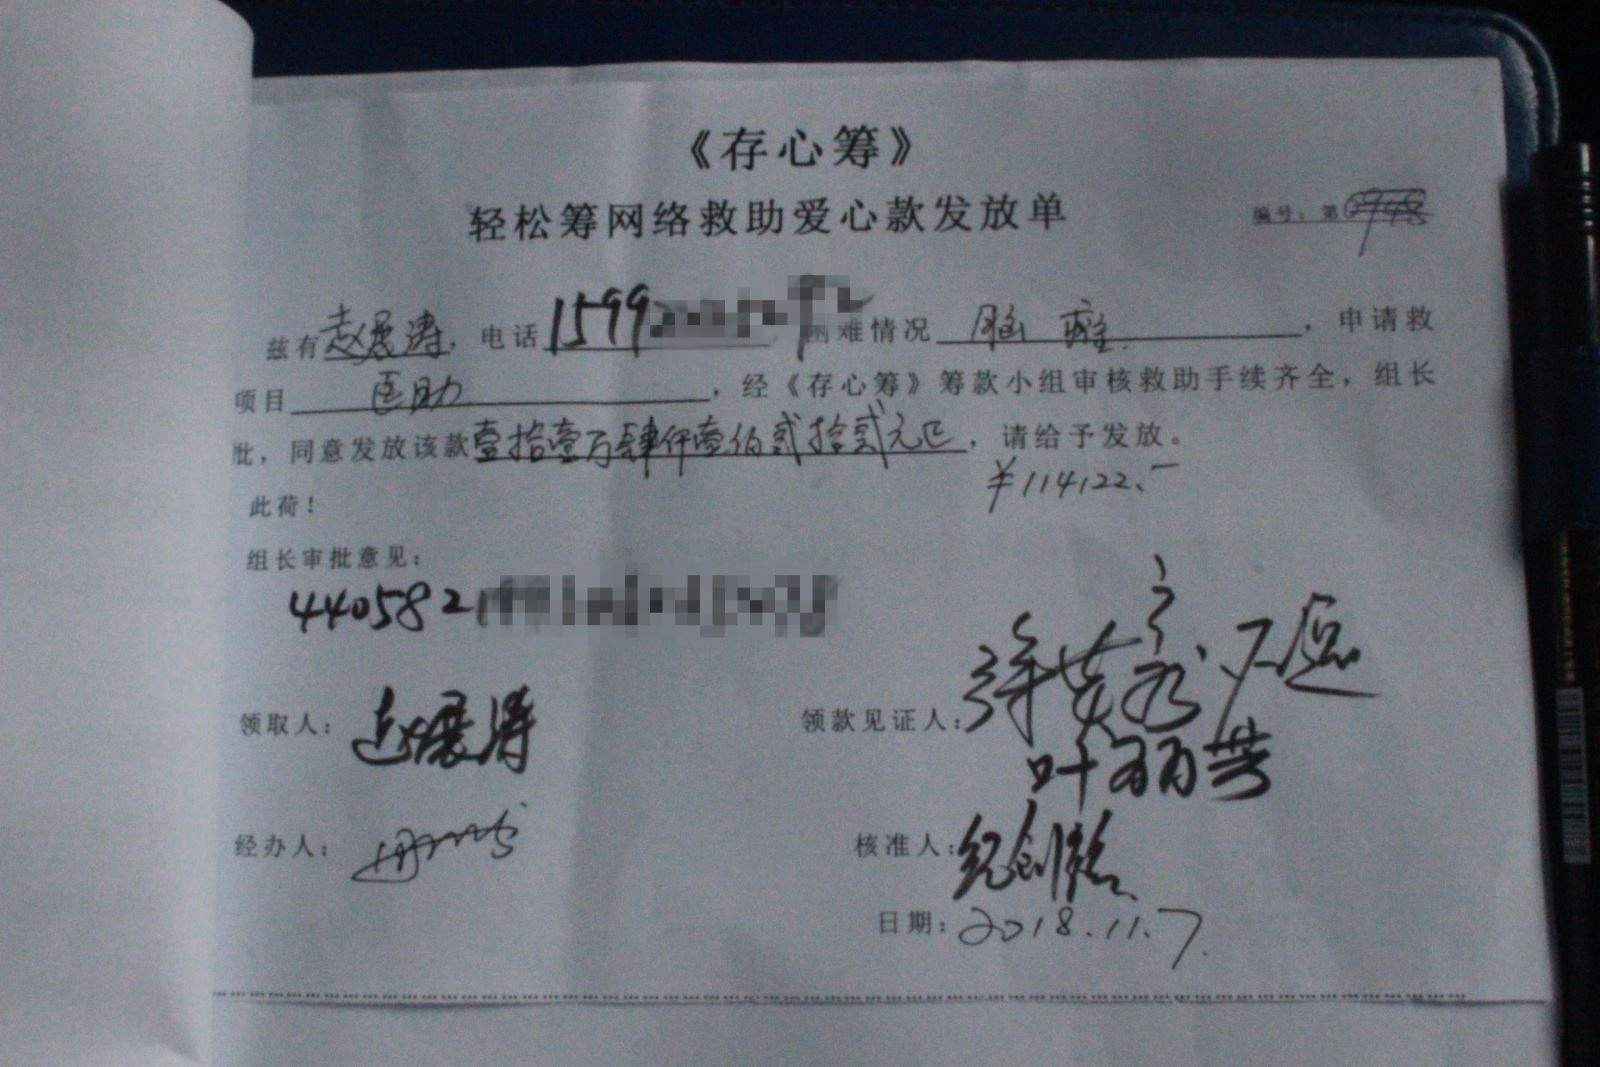 《存心筹》
轻松筹网络救助爱心款发放单
编号：第
兹有赵展涛，电话1599 难情况 脑瘫，申请救
项目 医助，经《存心筹》筹款小组审核救助手续齐全，组长
批，同意发放该款壹拾壹万肆仟壹佰贰拾贰元正，请给予发放。
¥114122.-
此荷！
组长审批意见：
440582
领取人：赵展涛
领款见证人：
叶丽芸
经办人：
核准人：纪创
日期：2018.11.7.